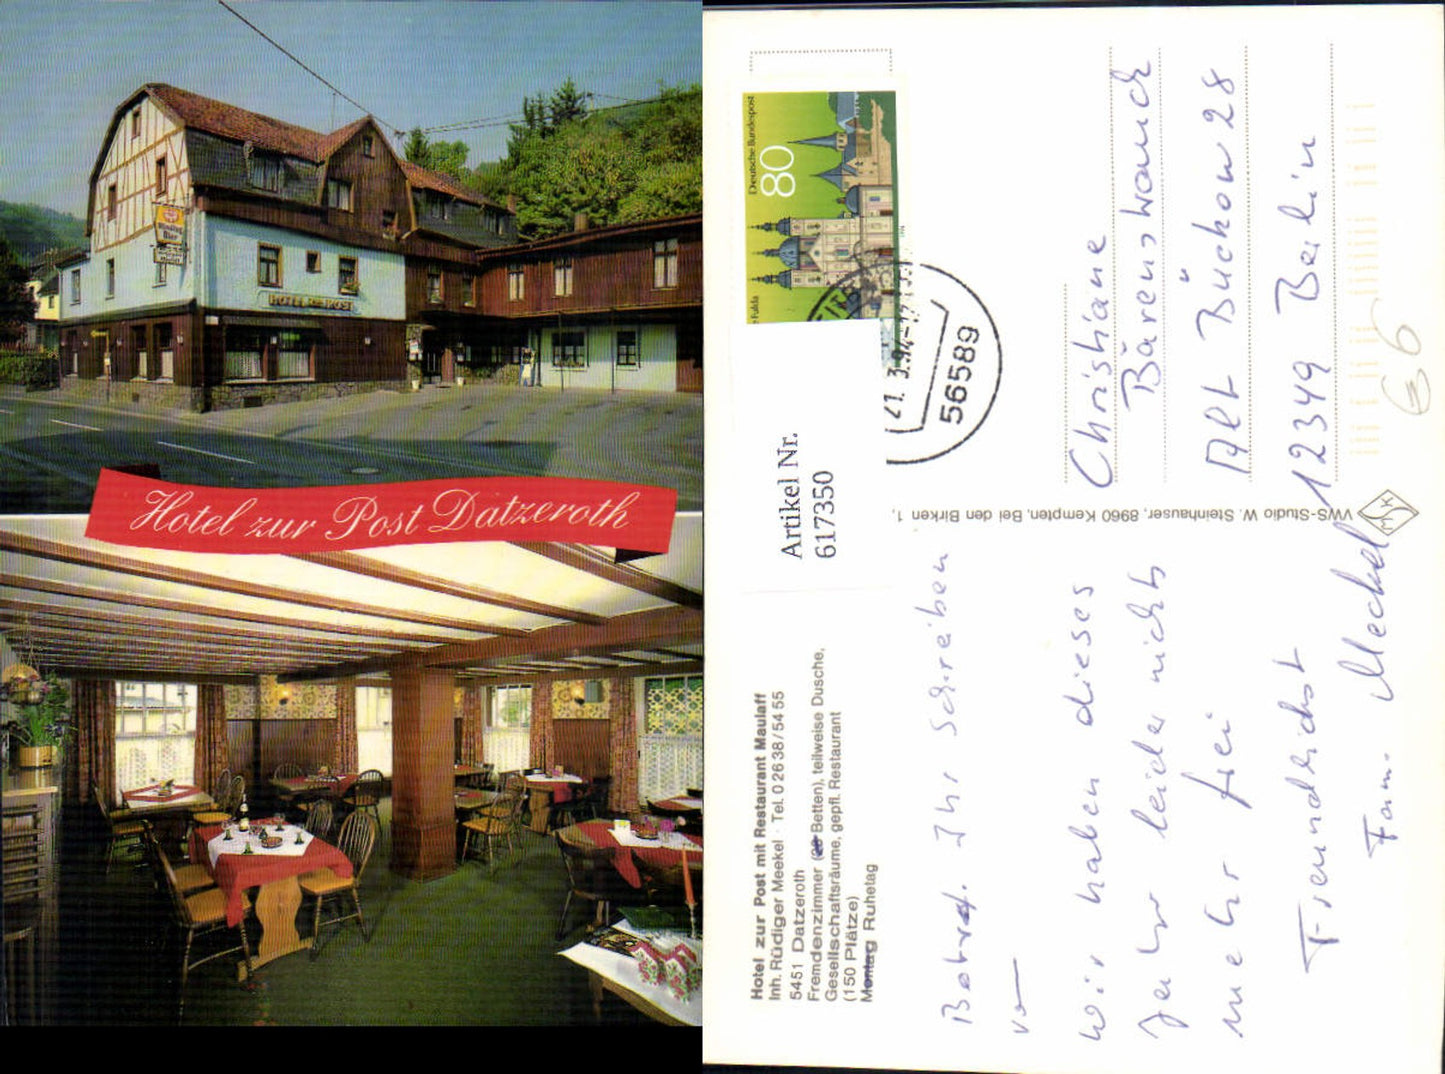 HOTEL ZUR POST
Hotel zur Post Datzeroth
Deutsche Bundespost
80
Fulda
21.-3.94-17
56589
Artikel Nr.
617350
Hotel zur Post mit Restaurant Maulaff
Inh. Rüdiger Meekel · Tel. 0 26 38 / 54 55
5451 Datzeroth
Fremdenzimmer ( Betten), teilweise Dusche,
Gesellschaftsräume, gepfl. Restaurant
(150 Plätze)
Montag Ruhetag
VWS-Studio W. Steinhauser, 8960 Kempten, Bei den Birken 1,
MKK
Christiane
Bärenswauch
Alt Buckow 28
12349 Berlin
Betref. Ihr Schreiben
von
Wir haben dieses
Jahr leider nichts
mehr frei
Freundlichst
Fam. Meekel